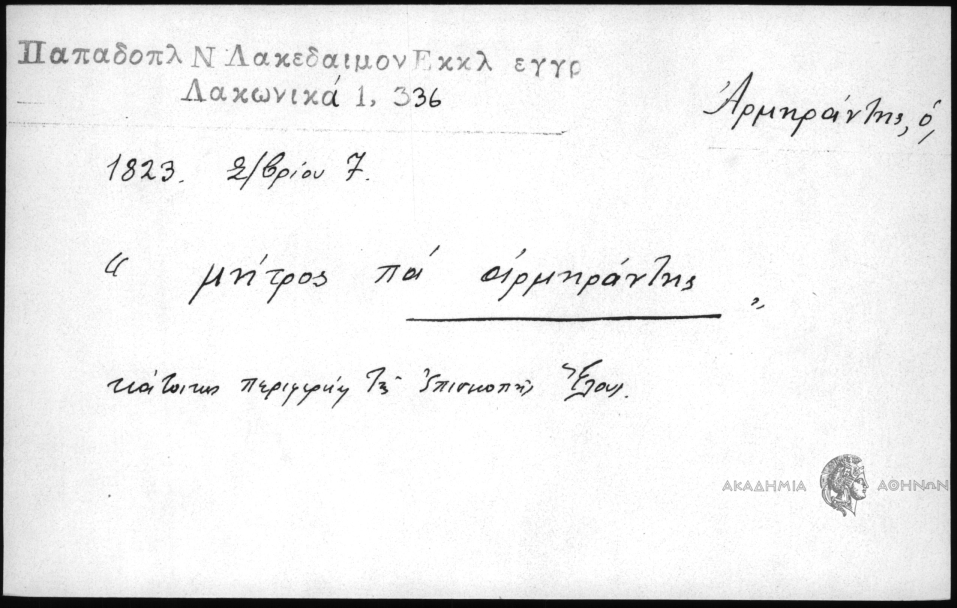 Παπαδοπλ Ν Λακεδαιμον Εκκλ εγγρ
Λακωνικά 1, 336
Ἀρμπράντης, ὁ,
1823. Σ/βρίου 7.
“ μήτρος πά ἀρμπράντης „
κάτοικος περιφερείας τῆς Ἐπισκοπῆς Ἕλους.
ΑΚΑΔΗΜΙΑ ΑΘΗΝΩΝ